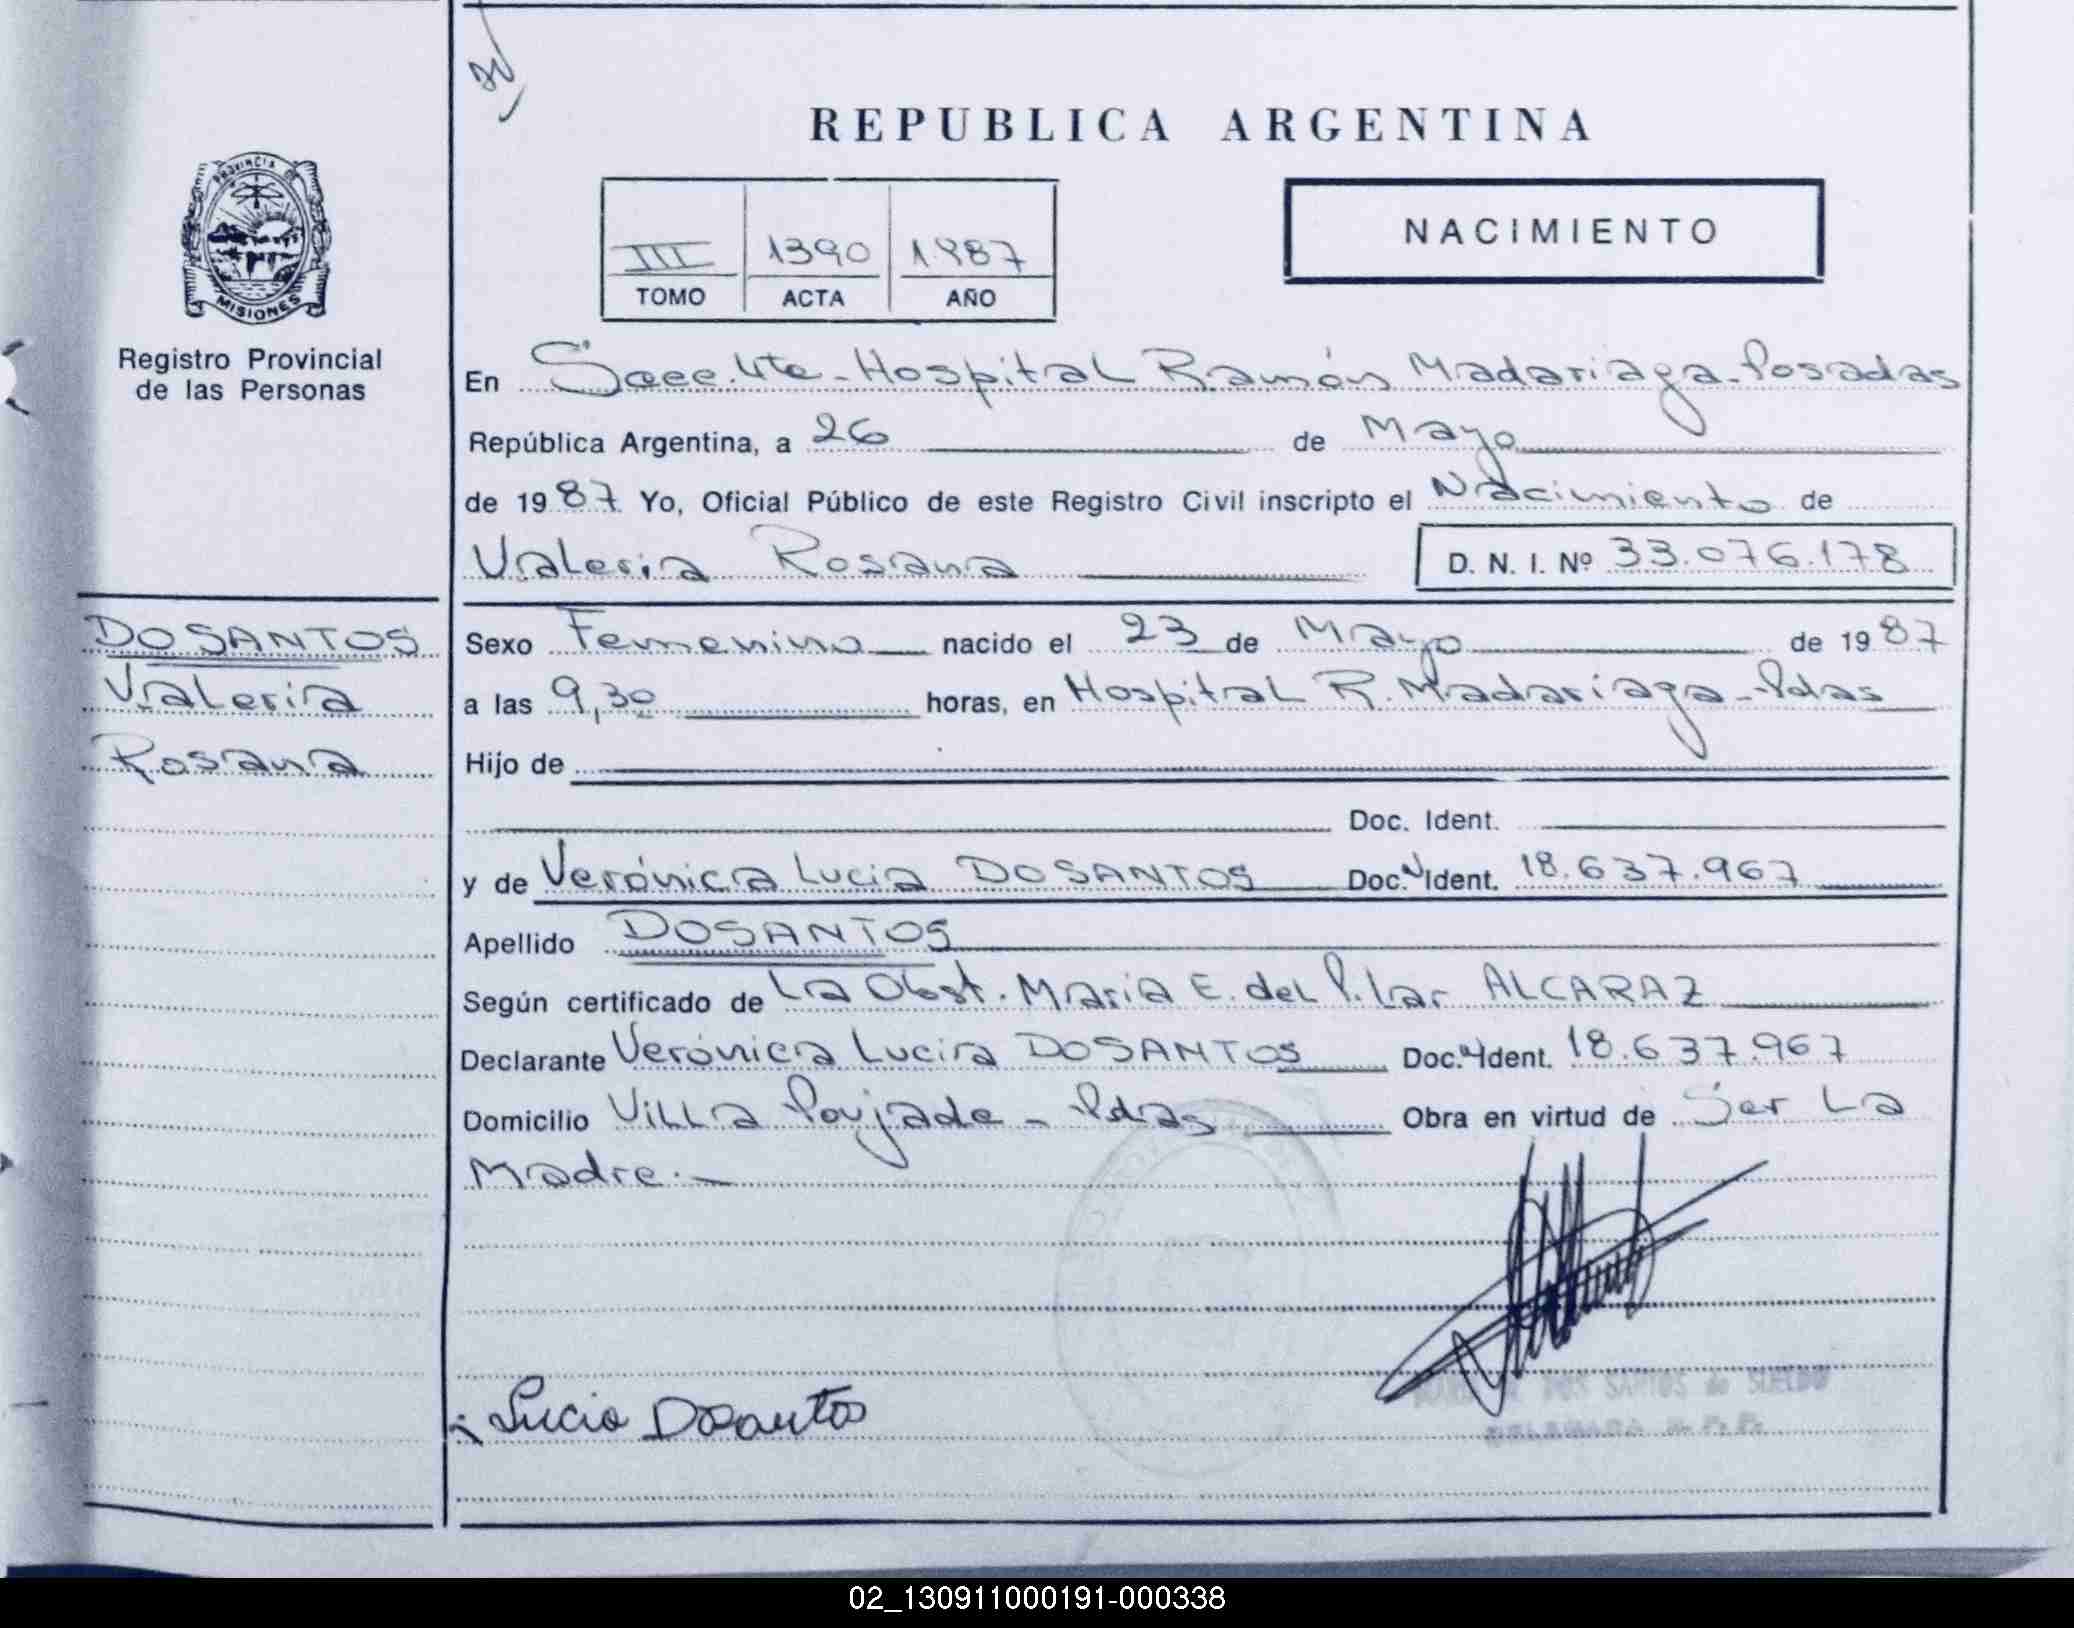 REPUBLICA ARGENTINA
PROVINCIA DE
MISIONES
Registro Provincial
de las Personas
III 1390 1987
TOMO ACTA AÑO
NACIMIENTO
En Secc. 4ta - Hospital Ramón Madariaga - Posadas
República Argentina, a 26 de Mayo
de 1987 Yo, Oficial Público de este Registro Civil inscripto el Nacimiento de
Valeria Rosana D. N. I. Nº 33.076.178
DOSANTOS
Valeria
Rosana
Sexo Femenino nacido el 23 de Mayo de 1987
a las 9,30 horas, en Hospital R. Madariaga - Pdas
Hijo de
Doc. Ident.
y de Verónica Lucia DOSANTOS Doc. Ident. 18.637.967
Apellido DOSANTOS
Según certificado de La Obst. Maria E. del Pilar ALCARAZ
Declarante Verónica Lucia DOSANTOS Doc. Ident. 18.637.967
Domicilio Villa Poujade - Pdas Obra en virtud de Ser La
Madre.-
DOS SANTOS de SUELDO
Lucia Dosantos
02_130911000191-000338